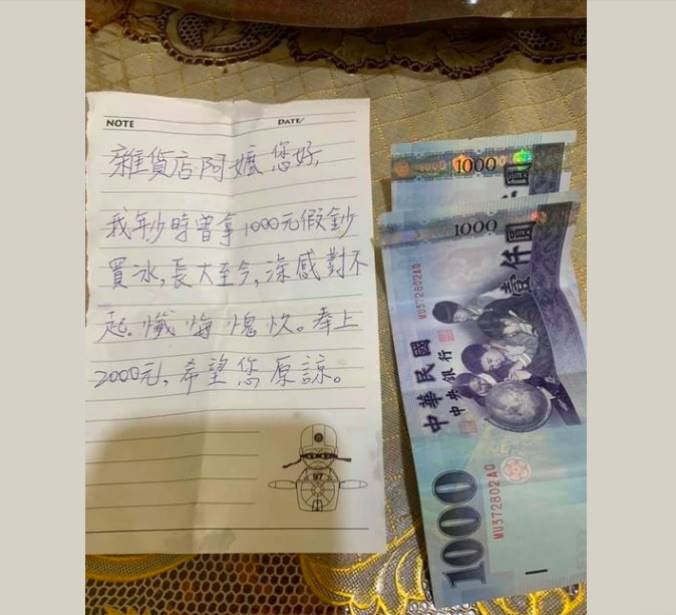 NOTE DATE/
雜貨店阿嬤您好,
我年少時曾拿1000元假鈔
買冰,長大至今,深感對不
起。懺悔愧疚。奉上
2000元,希望您原諒。
97
1000
1000
壹仟圓
中華民國
中央銀行
1000
WU372802AQ
WU372802AQ